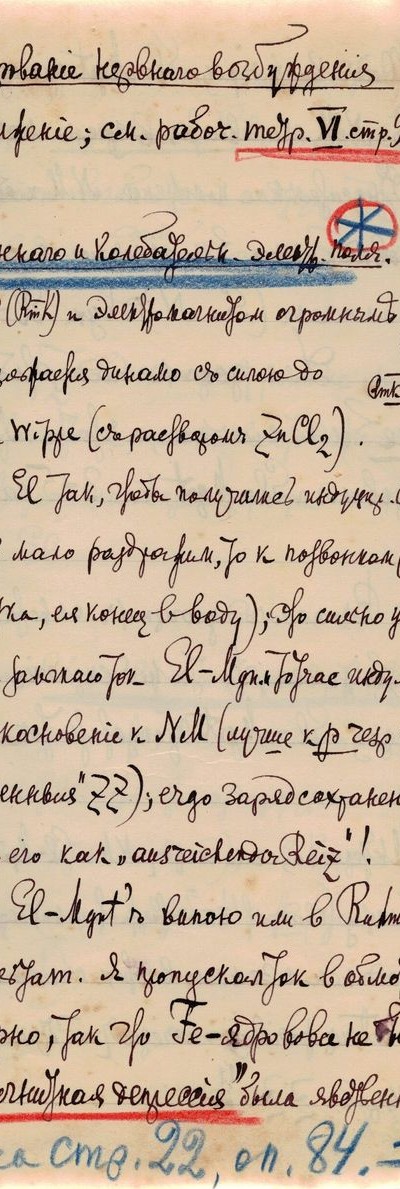 рованіе нервнаго возбужденія
женіе; см. рабоч. тетр. VI стр.
ннаго и колебательн. электр. поля.
(RmK) и электромагнитом огромным
динамо съ силою до
Rmk
Wippe (съ растворомъ ZnCl2).
El так, чтобы получились индукц.
мало раздражим, то к позвонкам
ка, ея конец в воду); это сильно
замыкаю ток El-Mgn. тотчас инду
косновеніе к NM (лучше к p чеrез
енныя "ZZ); ergo заряд сохранен
его как „ausreichender Reiz"!
El-Mgnt'ъ виною или в Ruhm
Я пропускал ток в обмо
рно, так что Fe-ядро вовсе не
гнитная депрессія" была явствен
ка стр. 22, оп. 84. =